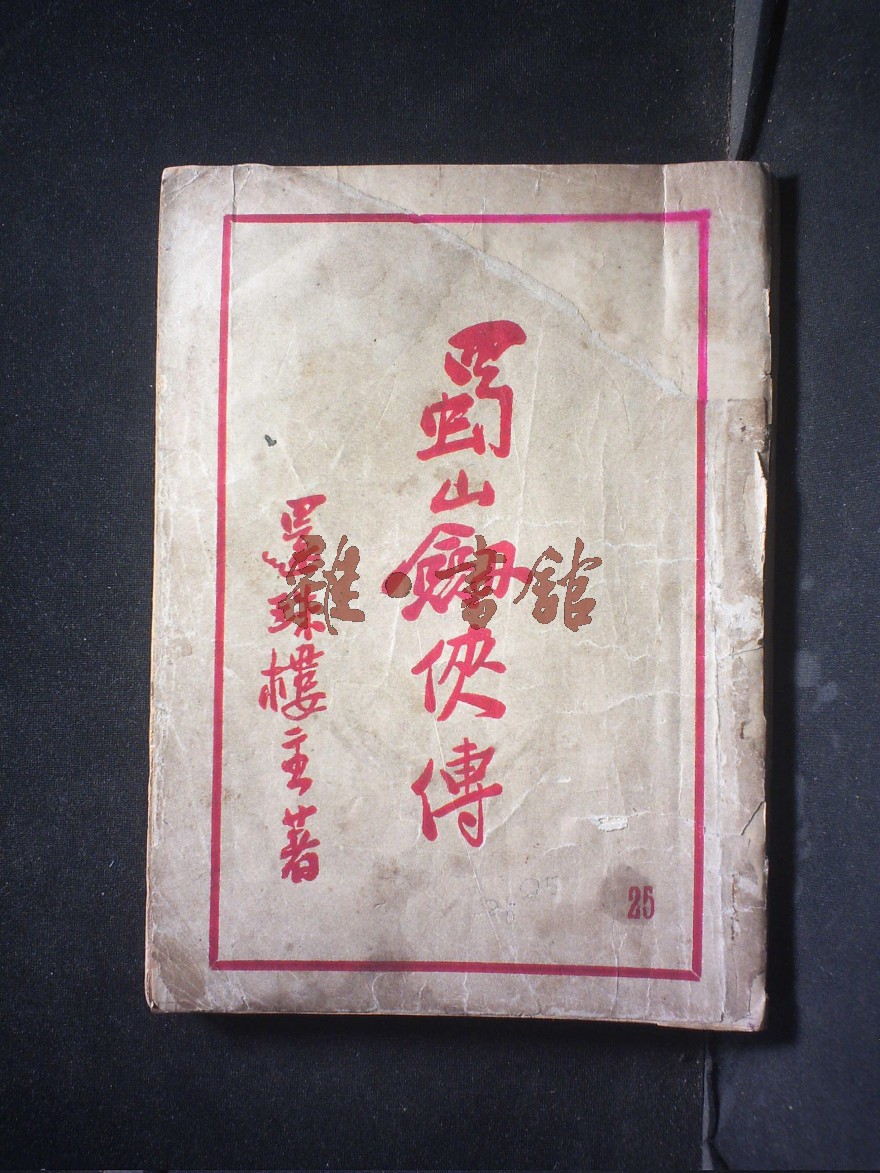 蜀山劍俠傳
還珠樓主著
25
雜·書館